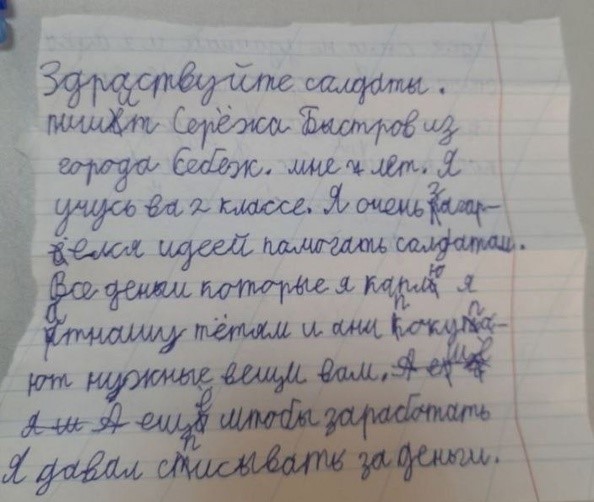 Здраствуйте солдаты.
пишит Серёжа Быстров из
города Себеж. мне 7 лет. Я
учусь ва 2 классе. Я очень загар-
елся идеей памогать салдатам.
Все деньги которые я каплю я
атнашу тётям и ани покупа-
ют нужные вещи вам.
ещё штобы заработать
Я давал списывать за деньги.